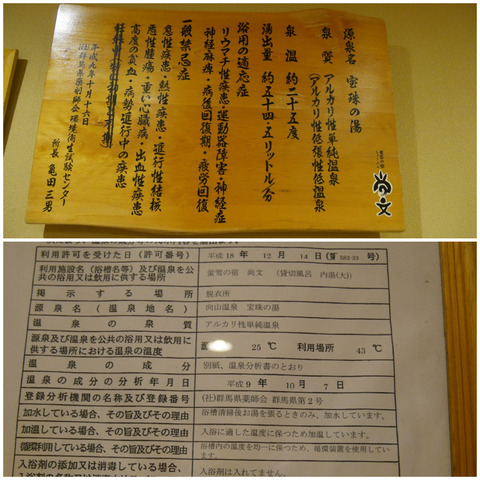 源泉名 宝珠の湯
泉質 アルカリ性単純温泉
(アルカリ性低張性低温泉)
泉温 約二十五度
湧出量 約五十四・五リットル/分
浴用の適応症
リウマチ性疾患・運動器障害・神経症
神経麻痺・病後回復期・疲労回復
一般禁忌症
急性疾患・熱性疾患・進行性結核
悪性腫瘍・重い心臓病・出血性疾患
高度の貧血・病勢進行中の疾患
平成九年十月十六日
(社)群馬県薬剤師会環境衛生試験センター
所長 亀田三男
尚文
利用許可を受けた日(許可番号)
平成 18 年 12 月 14 日(第 583-23 号)
利用施設名(浴槽名等)及び温泉を公共の浴用又は飲用に供する場所
釜雪の宿 尚文 (貸切風呂 内湯(大))
掲示する場所
脱衣所
源泉名(温泉地名)
向山温泉 宝珠の湯
温泉の泉質
アルカリ性単純温泉
源泉及び温泉を公共の浴用又は飲用に供する場所における温泉の温度
源 25 ℃ 利用場所 43 ℃
温泉の成分
別紙、温泉分析書のとおり
温泉の成分の分析年月日
平成 9 年 10 月 7 日
登録分析機関の名称及び登録番号
(社)群馬県薬師会 群馬県第2号
加水している場合、その旨及びその理由
浴槽清掃後お湯を張るときのみ、加水しています。
加温している場合、その旨及びその理由
入浴に適した温度に保つため加温しています。
循環利用している場合、その旨及びその理由
浴槽内の温度を均一に保つため、循環装置を使用しています。
入浴剤の添加又は消毒している場合、
入浴剤は入れてません。